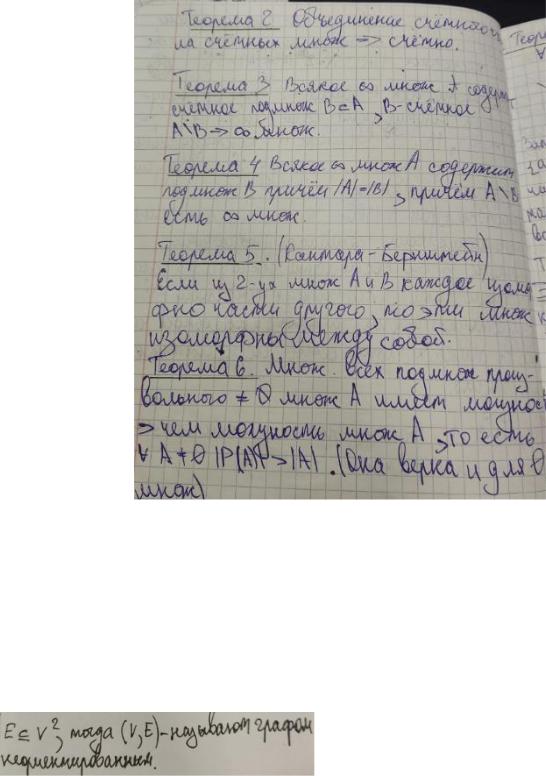 Теорема 2 Объединение счётного ч
ла счётных множ → счётно.
Теорема 3 Всякое ∞ множ A содерж
счётное подмнож B⊂A, B-счётное
A\B → ∞ множ.
Теорема 4 Всякое ∞ множ A содержит
подмнож B причём |A|=|B|, причём A\B
есть ∞ множ.
Теорема 5. (Кантора-Бернштейн)
Если из 2-ух множ A и B каждое изомо
фно части другого, то эти множ
изоморфны между собой.
Теорема 6. Множ. всех подмнож произ-
вольного ≠ ∅ множ A имеет мощност
> чем мощность множ A, то есть
∀ A ≠ ∅ |P(A)| > |A|. (Она верна и для ∅
множ)
E ⊆ V², тогда (V,E)-называют графом
неориентированным.